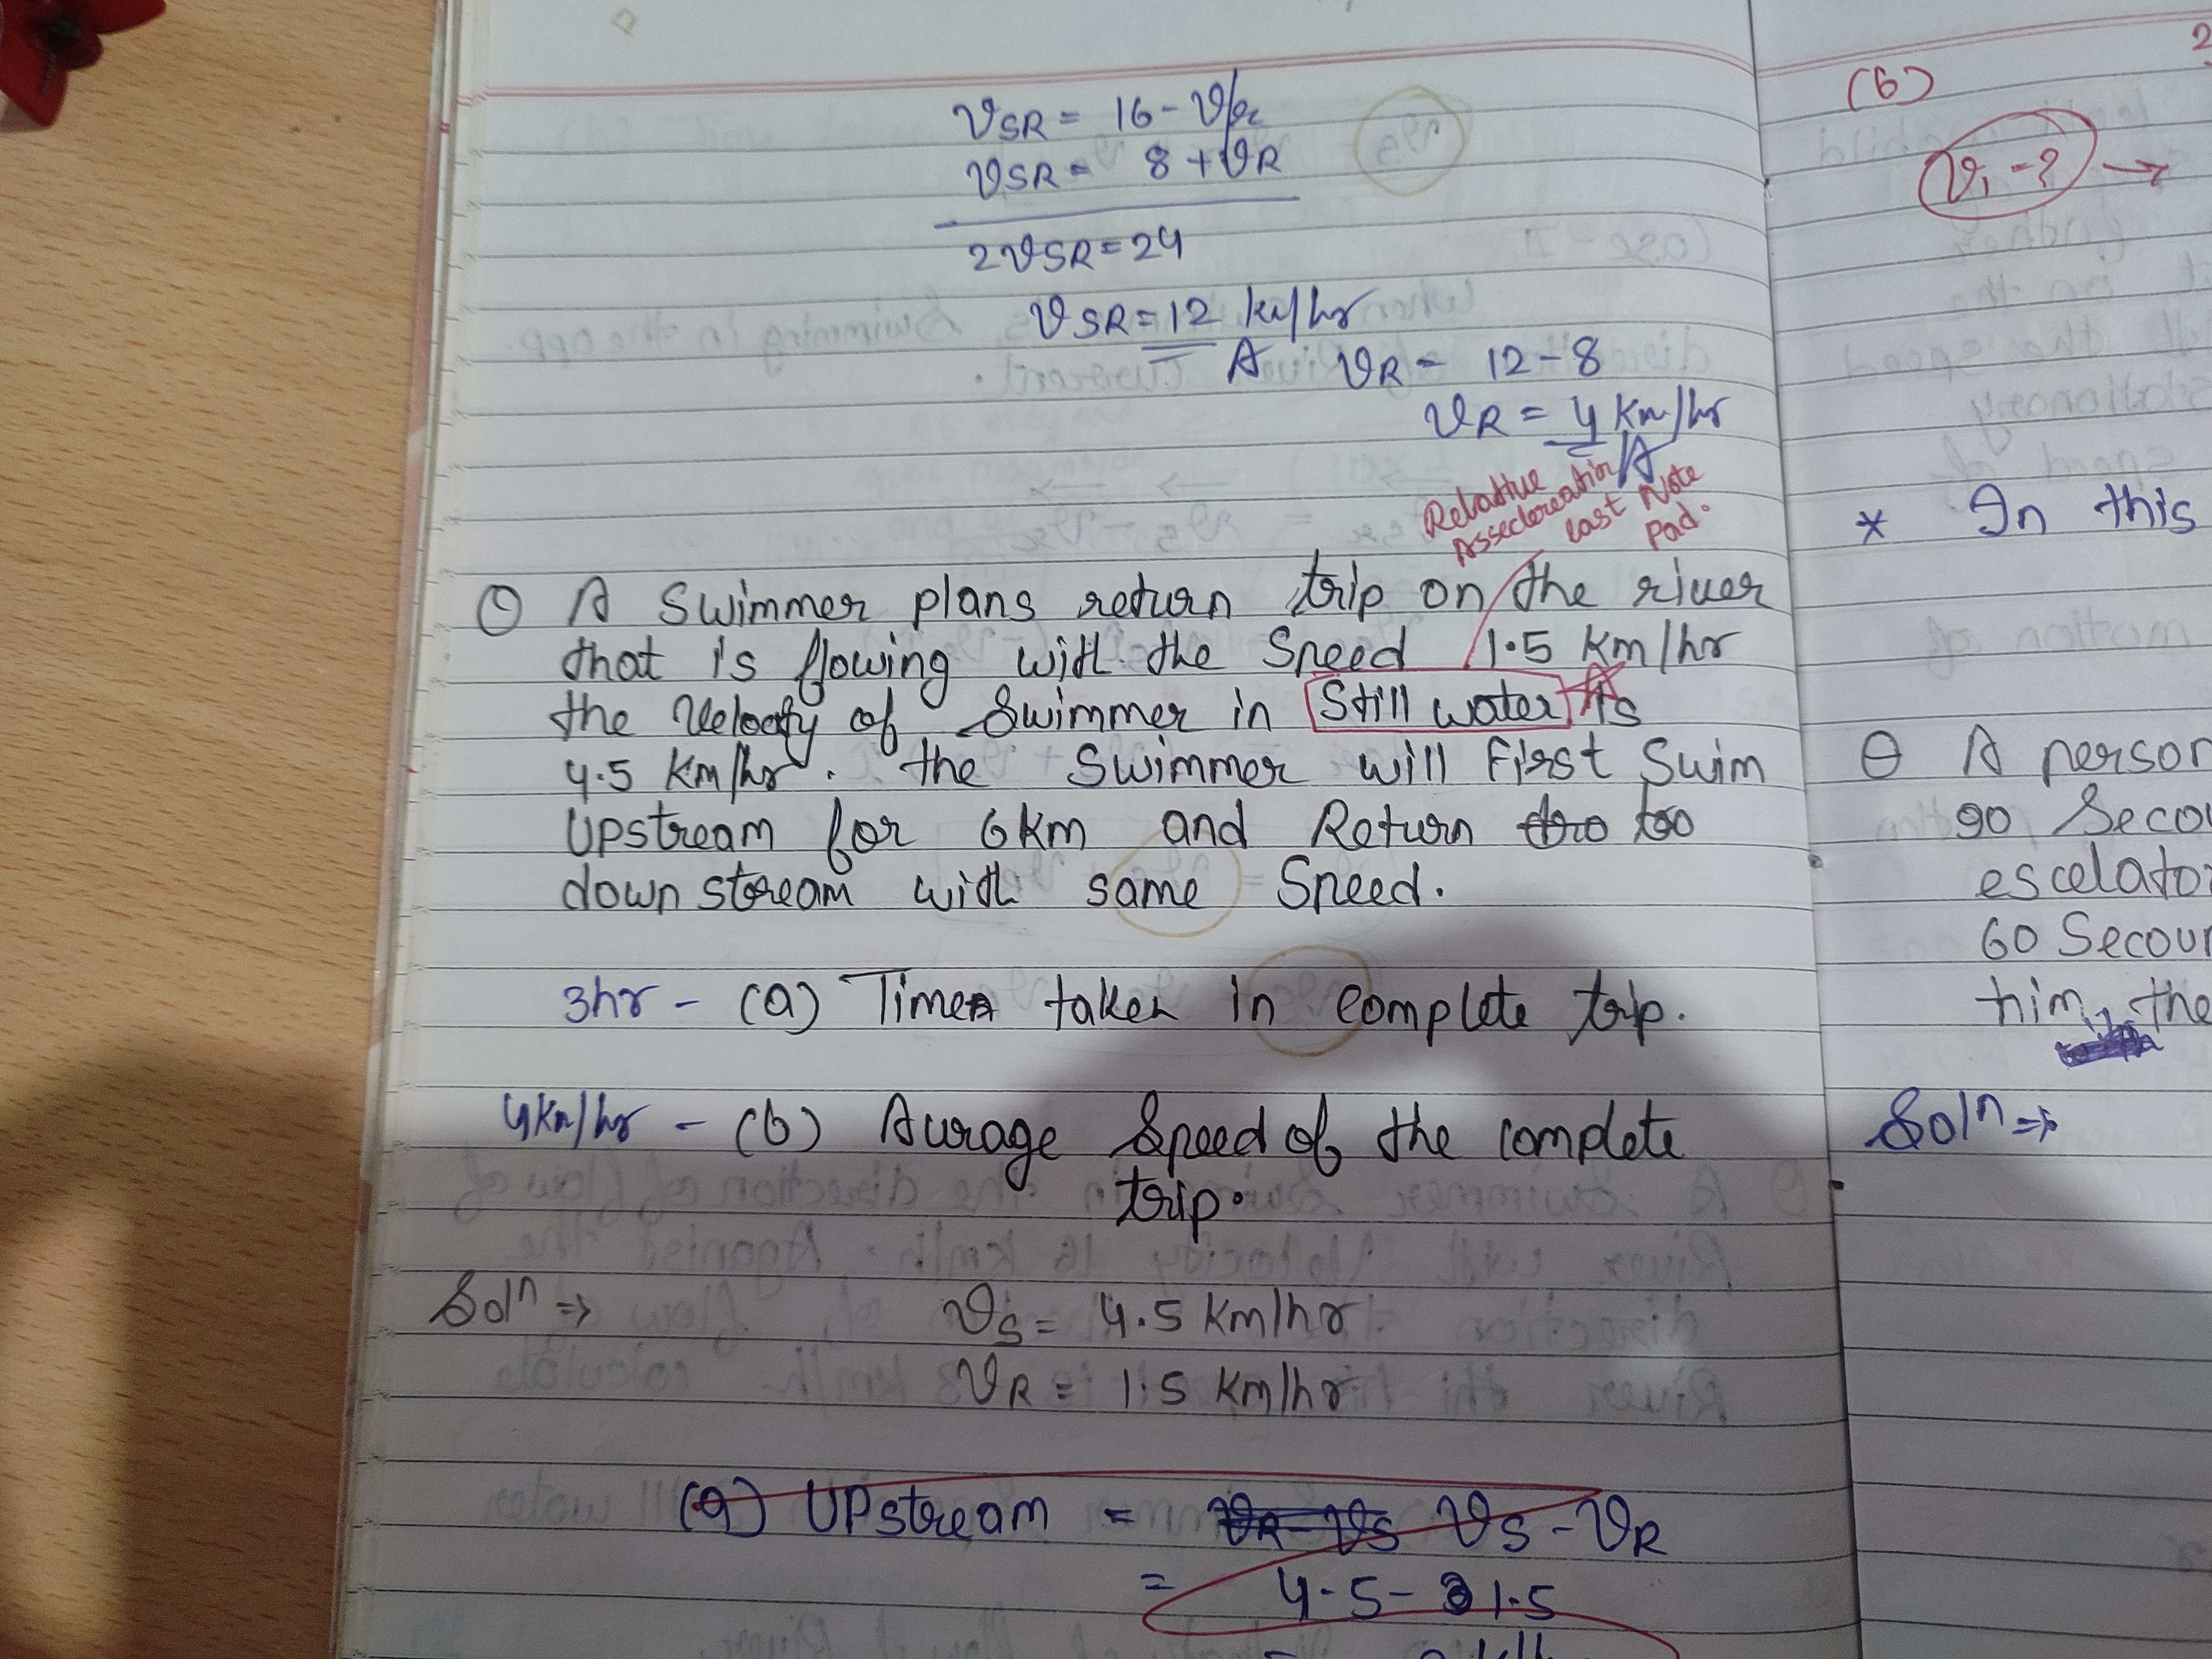 VSR = 16 - VR
VSR = 8 + VR
2VSR = 24
VSR = 12 km/hr
A VR = 12 - 8
VR = 4 km/hr
A
Relative
Asseclereation
last Note
pad.
Q A Swimmer plans return trip on the river
that is flowing with the Speed 1.5 km/hr
the velocity of Swimmer in Still water is
4.5 km/hr. the Swimmer will first Swim
Upstream for 6 km and Return too
down stream with same Speed.
3hr - (a) Time taken in complete trip.
4 km/hr - (b) Avrage Speed of the complete
trip.
Soln ⇒ VS = 4.5 km/hr
VR = 1.5 km/hr
(a) UPstream = VS - VR
= 4.5 - 1.5
(b)
V1 = ? →
* In this
Q A person
90 Seco
escelator
60 Secon
him, the
Soln ⇒